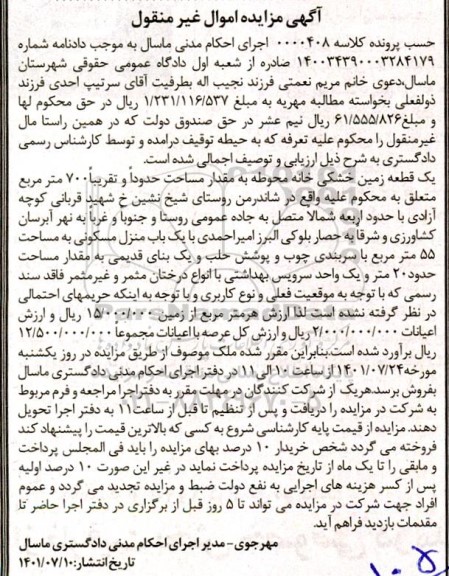 آگهی مزایده اموال غیر منقول
حسب پرونده کلاسه ۰۰۰۰۴۰۸ اجرای احکام مدنی ماسال به موجب دادنامه شماره
۱۴۰۰۳۴۳۹۰۰۰۳۲۸۴۱۷۹ صادره از شعبه اول دادگاه عمومی حقوقی شهرستان
ماسال،دعوی خانم مریم نعمتی فرزند نجیب اله بطرفیت آقای سرتیپ احدی فرزند
ذولفعلی بخواسته مطالبه مهریه به مبلغ ۱/۲۳۱/۱۱۶/۵۳۷ ریال در حق محکوم لها
و مبلغ۶۱/۵۵۵/۸۲۶ ریال نیم عشر در حق صندوق دولت که در همین راستا مال
غیرمنقول را محکوم علیه تعرفه که به حیطه توقیف درامده و توسط کارشناس رسمی
دادگستری به شرح ذیل ارزیابی و توصیف اجمالی شده است.
یک قطعه زمین خشکی خانه محوطه به مقدار مساحت حدوداً و تقریباً ۷۰۰ متر مربع
متعلق به محکوم علیه واقع در شاندرمن روستای شیخ نشین خ شهید قربانی کوچه
آزادی با حدود اربعه شمالا متصل به جاده عمومی روستا و جنوبا و غربا به نهر آبرسان
کشاورزی و شرقا به حصار بلوکی البرز امیراحمدی با یک باب منزل مسکونی به مساحت
۵۵ متر مربع با سربندی چوب و پوشش حلب و یک بنای قدیمی به مقدار مساحت
حدود۲۰ متر و یک واحد سرویس بهداشتی با انواع درختان مثمر و غیرمثمر فاقد سند
رسمی که با توجه به موقعیت فعلی و نوع کاربری و با توجه به اینکه حریمهای احتمالی
در نظر گرفته نشده است لذا ارزش هرمتر مربع از زمین ۱۵/۰۰۰/۰۰۰ ریال و ارزش
اعیانات ۲/۰۰۰/۰۰۰/۰۰۰ ریال و ارزش کل عرصه با اعیانات مجموعا ۱۲/۵۰۰/۰۰۰/۰۰۰
ریال برآورد شده است.بنابراین مقرر شده ملک موصوف از طریق مزایده در روز یکشنبه
مورخه ۱۴۰۱/۰۷/۲۴ از ساعت ۱۰ الی ۱۱ در دفتر اجرای احکام مدنی دادگستری ماسال
بفروش برسد.هریک از شرکت کنندگان در مهلت مقرر به دفتر اجرا مراجعه و فرم مربوط
به شرکت در مزایده را دریافت و پس از تنظیم تا قبل از ساعت۱۱ به دفتر اجرا تحویل
دهند. مزایده از قیمت پایه کارشناسی شروع به کسی که بالاترین قیمت را پیشنهاد کند
فروخته می گردد شخص خریدار ۱۰ درصد بهای مزایده را باید فی المجلس پرداخت
و مابقی را تا یک ماه از تاریخ مزایده پرداخت نماید در غیر این صورت ۱۰ درصد اولیه
پس از کسر هزینه های اجرایی به نفع دولت ضبط و مزایده تجدید می گردد و عموم
افراد جهت شرکت در مزایده می تواند تا ۵ روز قبل از برگزاری در دفتر اجرا حاضر تا
مقدمات بازدید فراهم آید.
مهرجوی- مدیر اجرای احکام مدنی دادگستری ماسال
تاریخ انتشار:۱۴۰۱/۰۷/۱۰